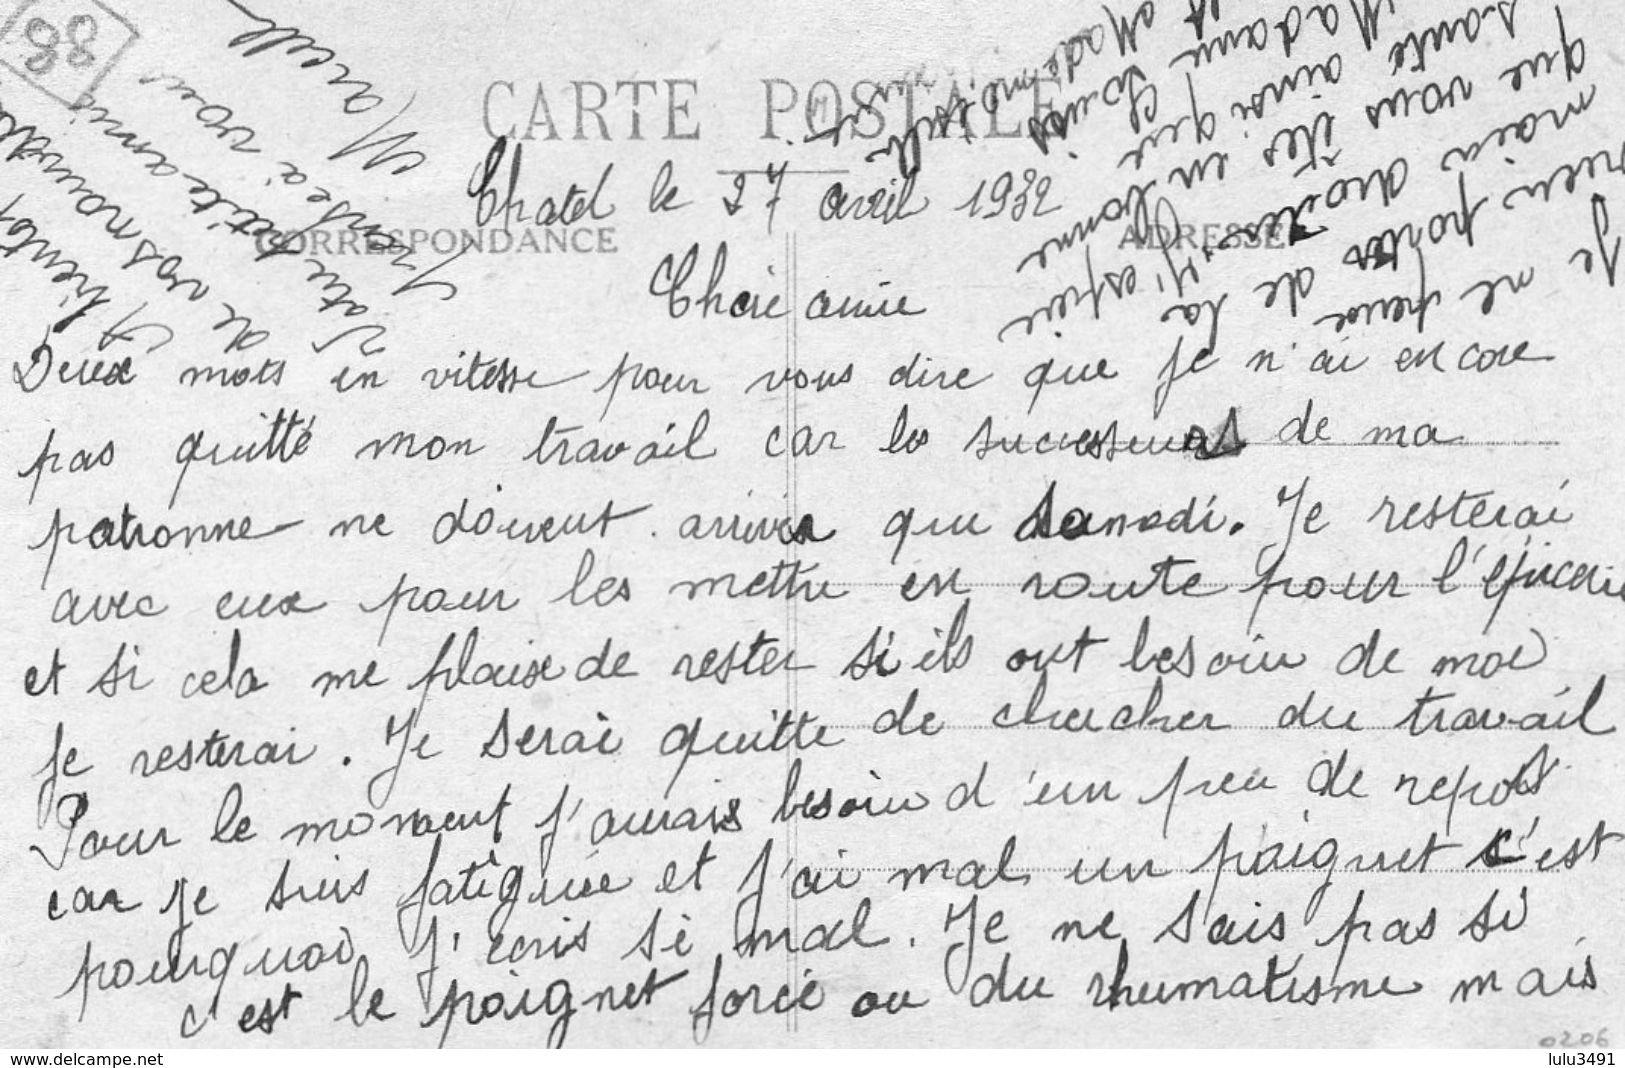 88
CARTE POSTALE
Chatel le 27 avril 1932
CORRESPONDANCE
ADRESSE
Chère amie
Deux mots en vitesse pour vous dire que je n'ai encore
pas quitté mon travail car les successeurs de ma
patronne ne doivent arriver que samedi. Je resterai
avec eux pour les mettre en route pour l'épicerie
et si cela me plaise de rester si ils ont besoin de moi
je resterai. Je serai quitte de chercher du travail
Pour le moment j'aurais besoin d'un peu de repos
car je suis fatiguée et j'ai mal un poignet c'est
pourquoi j'écris si mal. Je ne sais pas si
c'est le poignet forcé ou du rhumatisme mais
Je ne peux
rien porter de la
main droite. J'espère
que vous êtes en bonne
santé ainsi que
Madame Louis
et Mademoiselle
A bientôt
de vos nouvelles
Votre petite amie
qui pense à vous
Marcelle
0206
www.delcampe.net
lulu3491